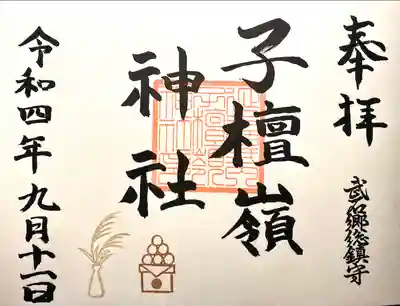 奉拝
武石郷総鎮守
子檀嶺
神社
令和四年九月十一日